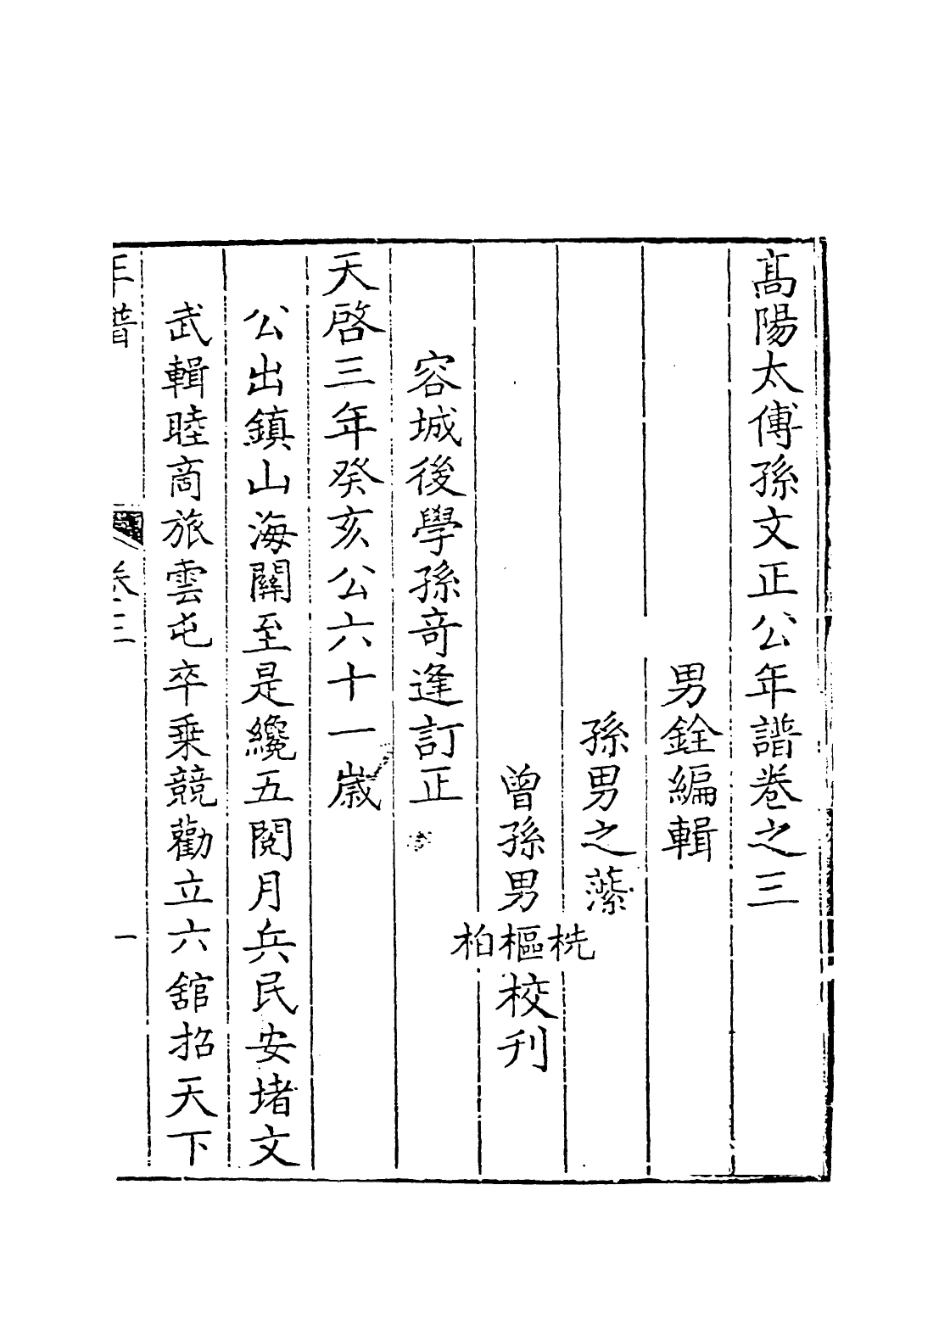 高陽太傅孫文正公年譜卷之三
男銓編輯
孫男之藻
曾孫男桄樞柏校刊
容城後學孫奇逢訂正
天啓三年癸亥公六十一歲
公出鎮山海關至是纔五閱月兵民安堵文
武輯睦商旅雲屯卒乗競勸立六舘招天下
年譜 卷三 一